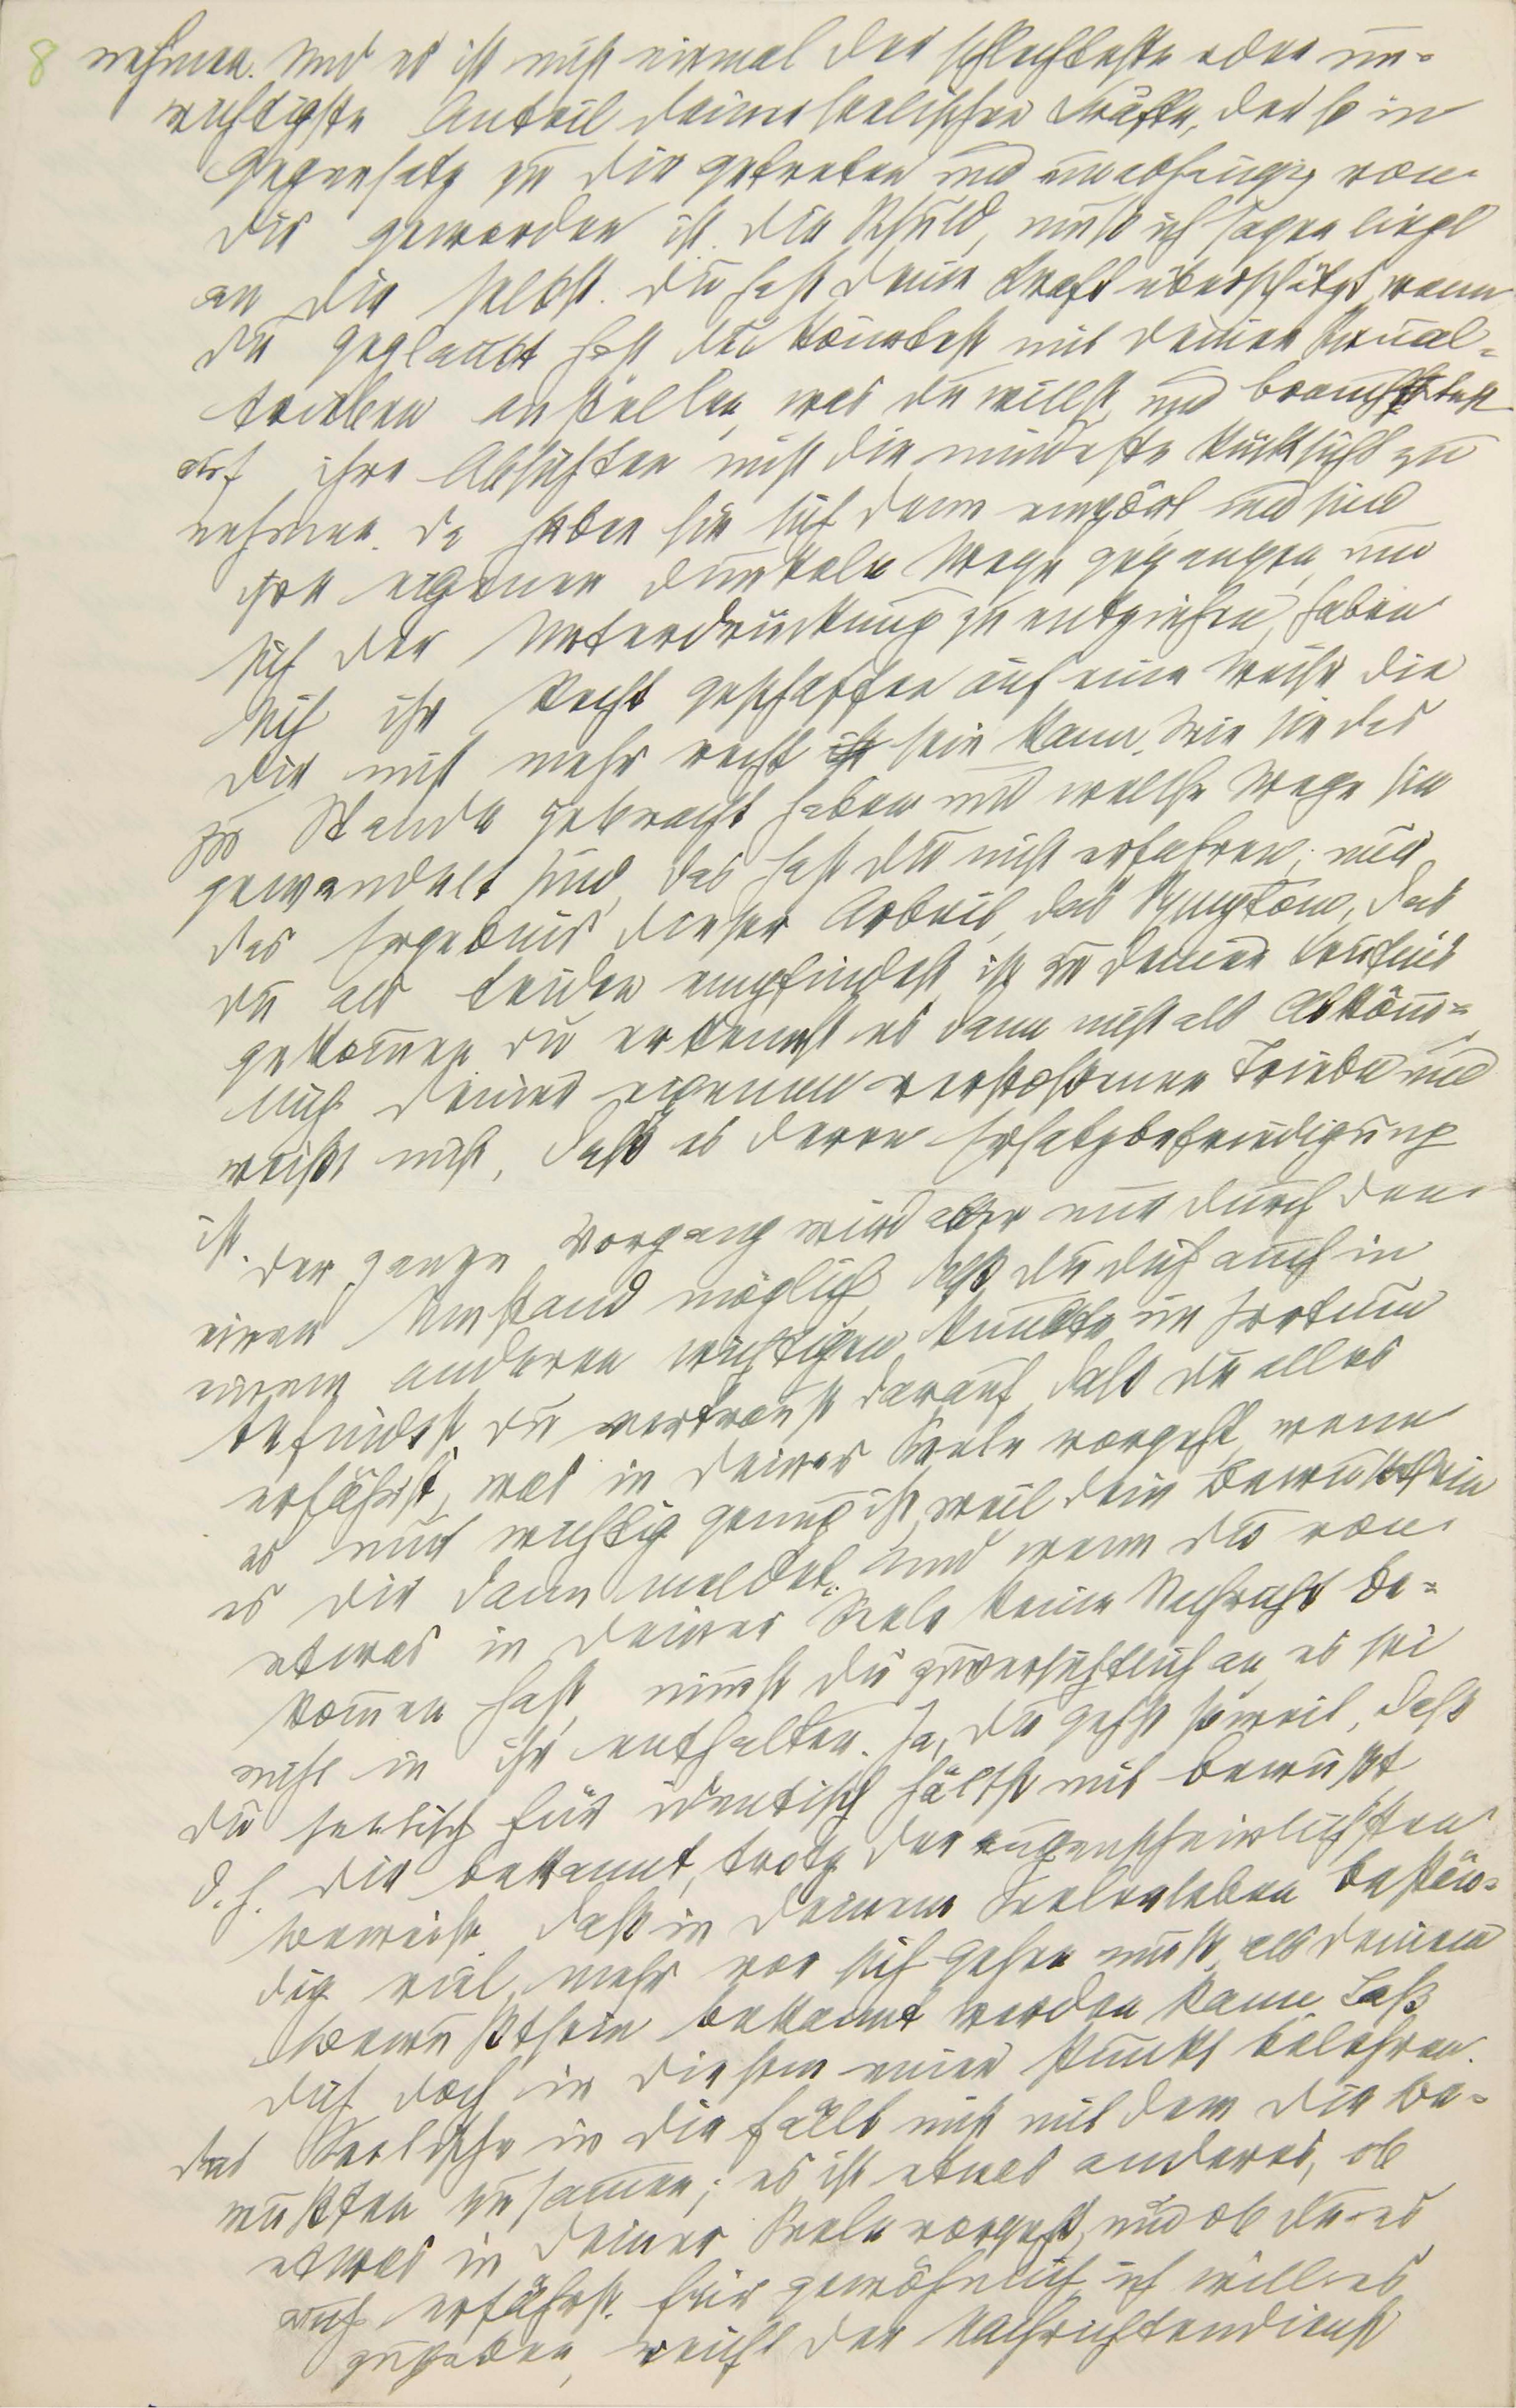 8 nehmen. Und es ist nicht einmal der schlechteste oder un-
wichtigste Anteil deiner seelischen Kräfte, der so in
Gegensatz zu dir getreten und unabhängig von
dir geworden ist. Die Schuld, muß ich sagen liegt
an dir selbst. Du hast deine Kraft überschätzt, wenn
du geglaubt hast du könntest mit deinen Sexual-
trieben anstellen, was du willst, und brauchtest
auf ihre Absichten nicht die mindeste Rücksicht zu
nehmen. Da haben sie sich denn empört und sind
ihre eigenen dunkeln Wege gegangen, um
sich der Unterdrückung zu entziehen, haben
sich ihr Recht geschaffen auf eine Weise die
dir nicht mehr recht ist sein kann. Wie sie das
zu Stande gebracht haben und welche Wege sie
gewandelt sind, das hast du nicht erfahren; nur
das Ergebnis dieser Arbeit, das Symptom, das
du als Leiden empfindest, ist zu deiner Kenntnis
gekommen. Du erkennst es dann nicht als Abkömm-
ling deiner eigenen verstoßenen Triebe und
weißt nicht, daß es deren Ersatzbefriedigung
ist. Der ganze Vorgang wird aber nur durch den
einen Umstand möglich, daß du dich auch in
einem anderen wichtigen Punkte im Irrtum
befindest. Du vertraust darauf, daß du alles
erfährst, was in deiner Seele vorgeht, wenn
es nur wichtig genug ist, weil dein Bewußtsein
es dir dann meldet. Und wenn du von
etwas in deiner Seele keine Nachricht be-
kommen hast, nimmst du zuversichtlich an, es sei
nicht in ihr enthalten. Ja, du gehst soweit, daß
du seelisch für identisch hältst mit bewußt,
d. h. dir bekannt, trotz der augenscheinlichsten
Beweise, daß in deinem Seelenleben bestän-
dig viel mehr vor sich gehen muß, als deinem
Bewußtsein bekannt werden kann. Laß
dich doch in diesem einen Punkt belehren.
Das Seelische in dir fällt nicht mit dem dir be-
wußten zusammen; es ist etwas anderes, ob
etwas in deiner Seele vorgeht, und ob du es
auch erfährst. Für gewöhnlich, ich will es
zugeben, reicht der Nachrichtendienst